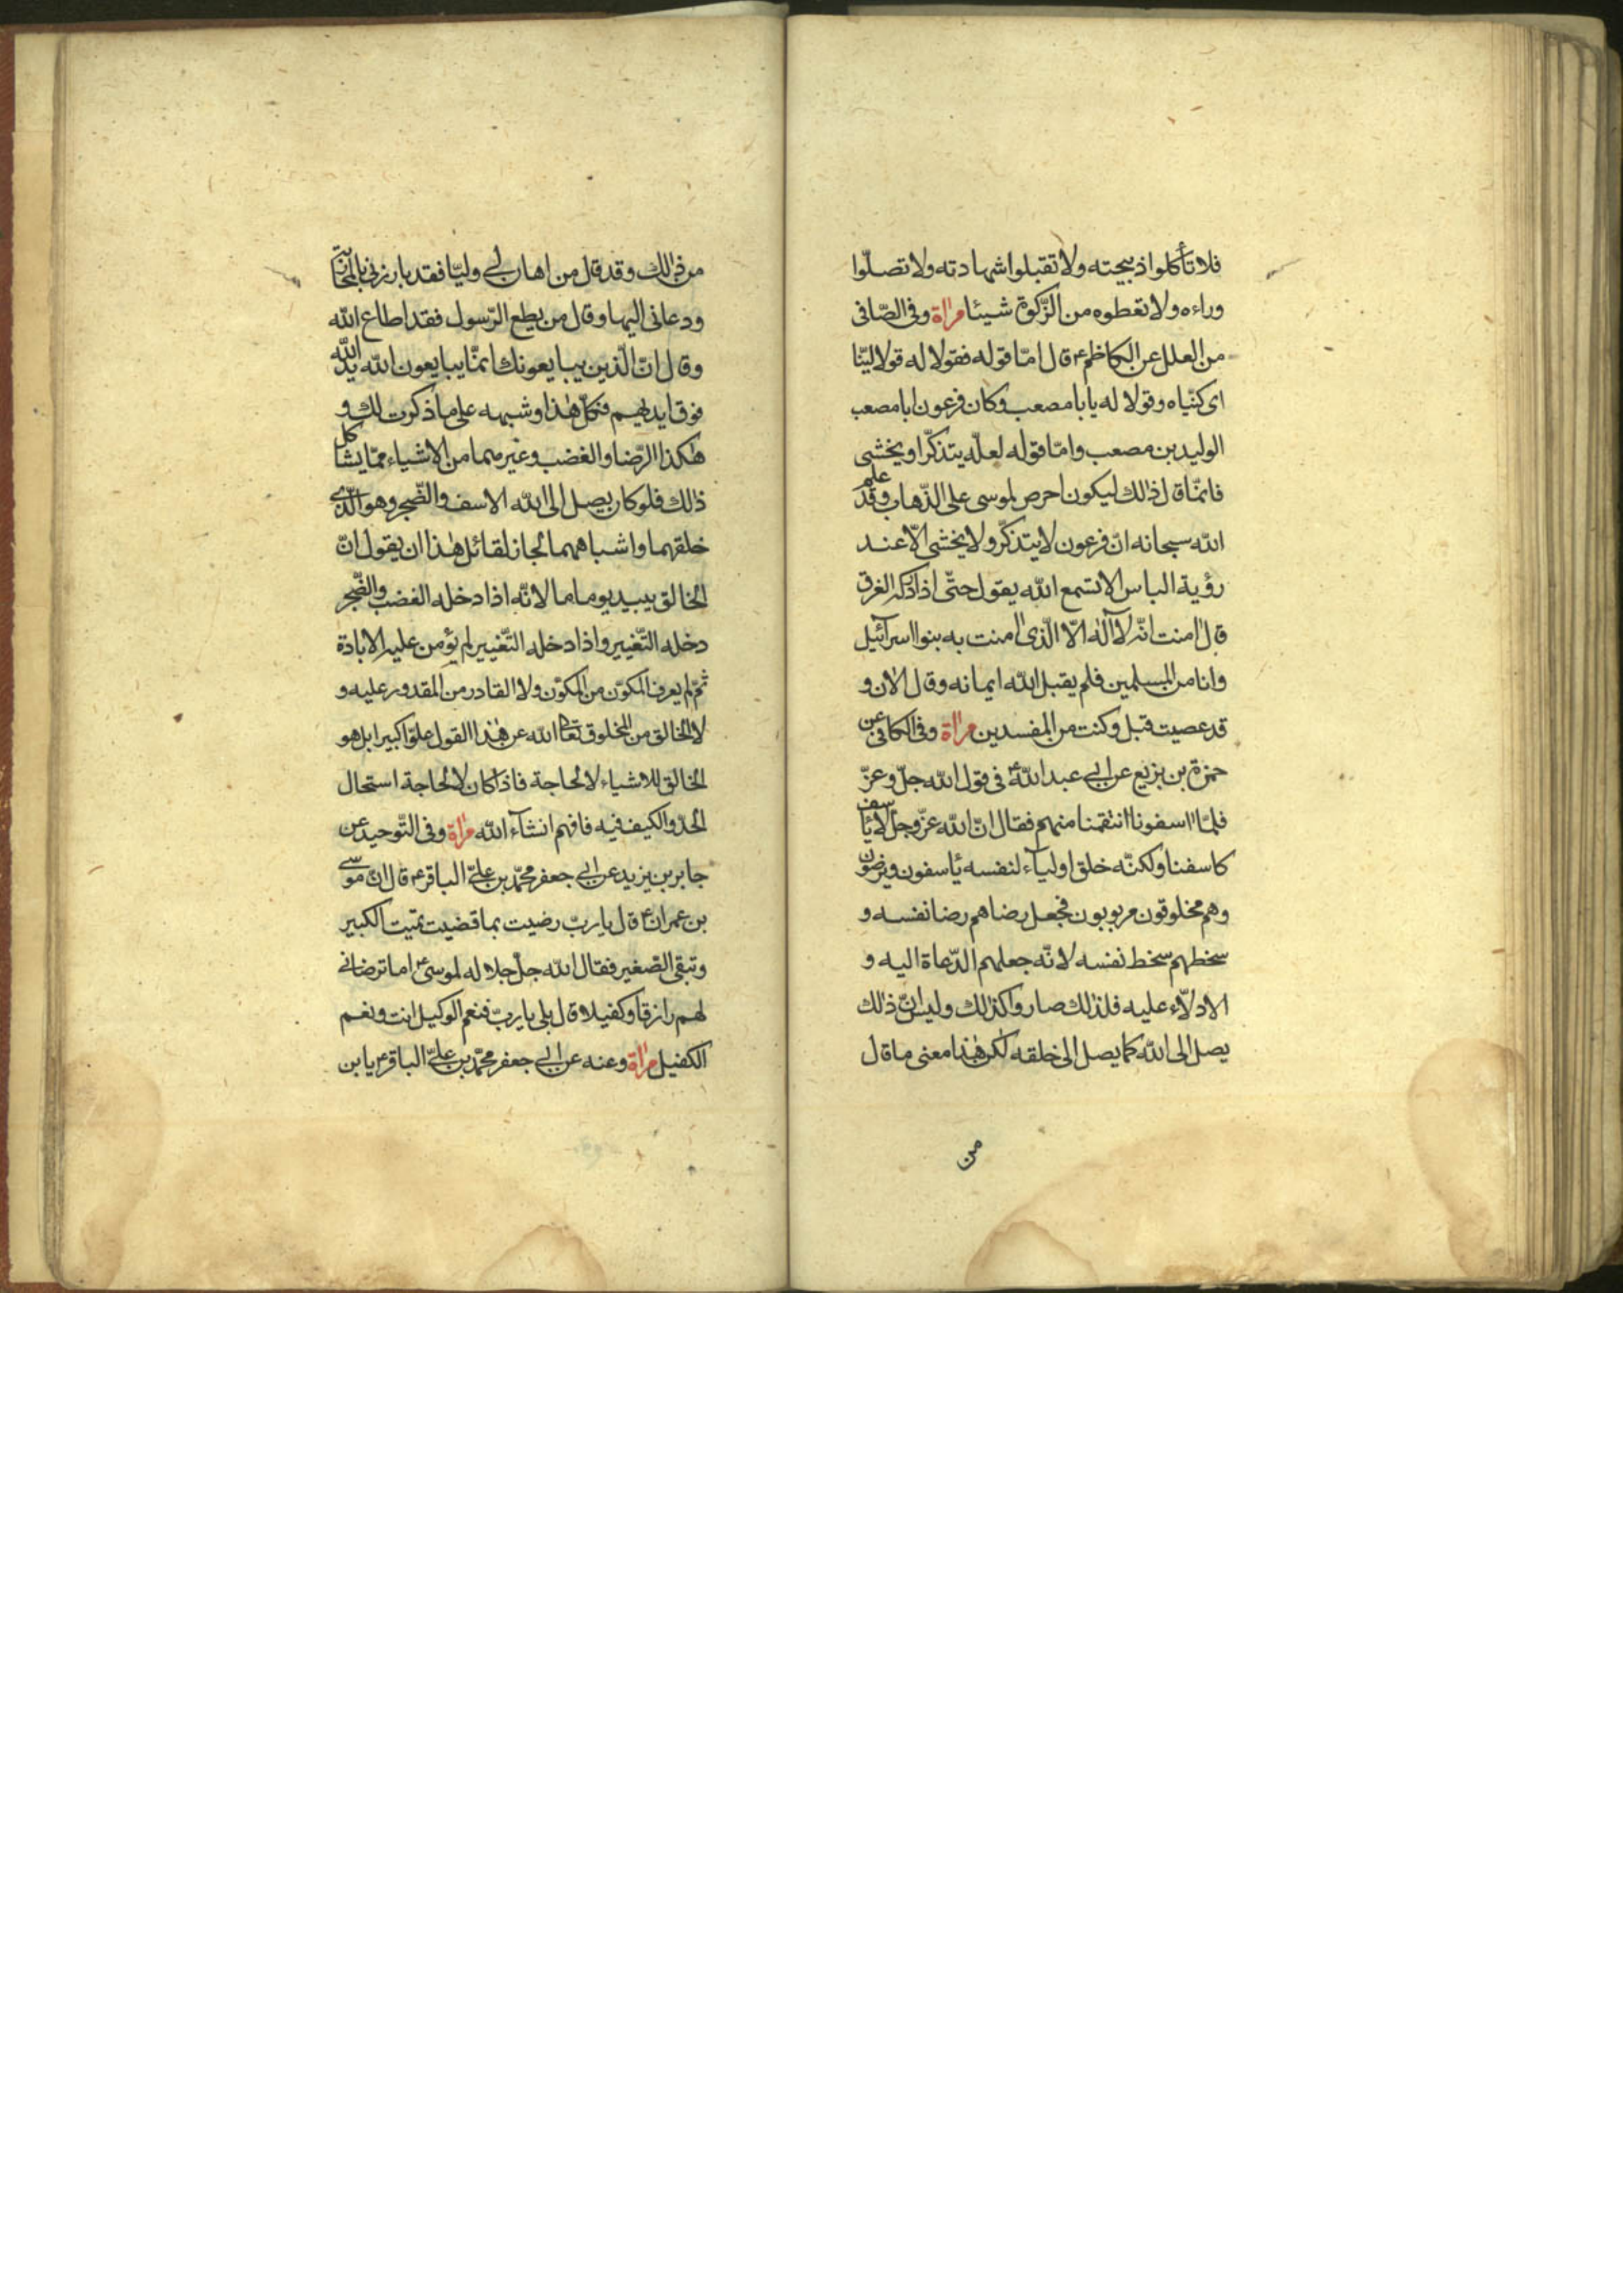 فلا تأكلوا ذبيحته ولا تقبلوا شهادته ولا تصلّوا
وراءه ولا تعطوه من الزّكوة شيئا مراة وفى الصّافى
من العلل عن الكاظم ع قال امّا قوله فقولا له قولا ليّنا
اى كنّياه وقولا له يا با مصعب وكان فرعون ابا مصعب
الوليد بن مصعب وامّا قوله لعلّه يتذكّر او يخشى
فانمّا قال ذلك ليكون احرص لموسى على الذّهاب وقد علم
الله سبحانه انّ فرعون لا يتذكّر ولا يخشى الّا عند
رؤية الباس الا تسمع الله يقول حتّى اذا ادركه الغرق
قال امنت انّه لا آله الّا الّذى امنت به بنوا اسرآئيل
وانا من المسلمين فلم يقبل الله ايمانه وقال الان و
قد عصيت قبل وكنت من المفسدين مراة وفى الكافى عن
حمزة بن بزيع عن ابى عبد الله ع فى قول الله جلّ وعزّ
فلمّا اسفونا انتقمنا منهم فقال انّ الله عزّ وجلّ لا يأسف
كاسفنا ولكنّه خلق اوليآء لنفسه يأسفون ويرضون
وهم مخلوقون مربوبون فجعل رضاهم رضا نفسه و
سخطهم سخط نفسه لانّه جعلهم الدّعاة اليه و
الادلّاء عليه فلذلك صاروا كذلك وليس انّ ذلك
يصل الى الله كما يصل الى خلقه لكن هذا معنى ما قال
من
من ذلك وقد قال من اهان لى وليّا فقد بارزنى بالمحاربة
ودعانى اليها وقال من يطع الرّسول فقد اطاع الله
وقال انّ الّذين يبايعونك انمّا يبايعون الله يد الله
فوق ايديهم فكلّ هذا وشبهه على ما ذكرت لك و
هكذا الرّضا والغضب وغيرهما من الاشياء ممّا يشاكل
ذلك فلو كان يصل الى الله الاسف والضّجر وهو الّذى
خلقهما واشباههما لجاز لقائل هذا ان يقول انّ
الخالق يبيد يوما ما لانّه اذا دخله الغضب والضّجر
دخله التّغيير واذا دخله التّغيير لم يؤمن عليه الابادة
ثمّ لم يعرف المكوّن من المكوّن ولا القادر من المقدور عليه و
لا الخالق من المخلوق تعالى الله عن هذا القول علوّا كبيرا بل هو
الخالق للاشياء لا لحاجة فاذا كان لا لحاجة استحال
الحدّ والكيف فيه فافهم انشآء الله مراة وفى التّوحيد عن
جابر بن يزيد عن ابى جعفر محمّد بن علىّ الباقر ع قال انّ موسى
بن عمران ع قال يا ربّ رضيت بما قضيت تميت الكبير
وتبقى الصّغير فقال الله جلّ جلاله لموسى ع اما ترضانى
لهم رازقا وكفيلا قال بلى يا ربّ فنعم الوكيل انت ونعم
الكفيل مراة وعنه عن ابى جعفر محمّد بن علىّ الباقر ع يا بن